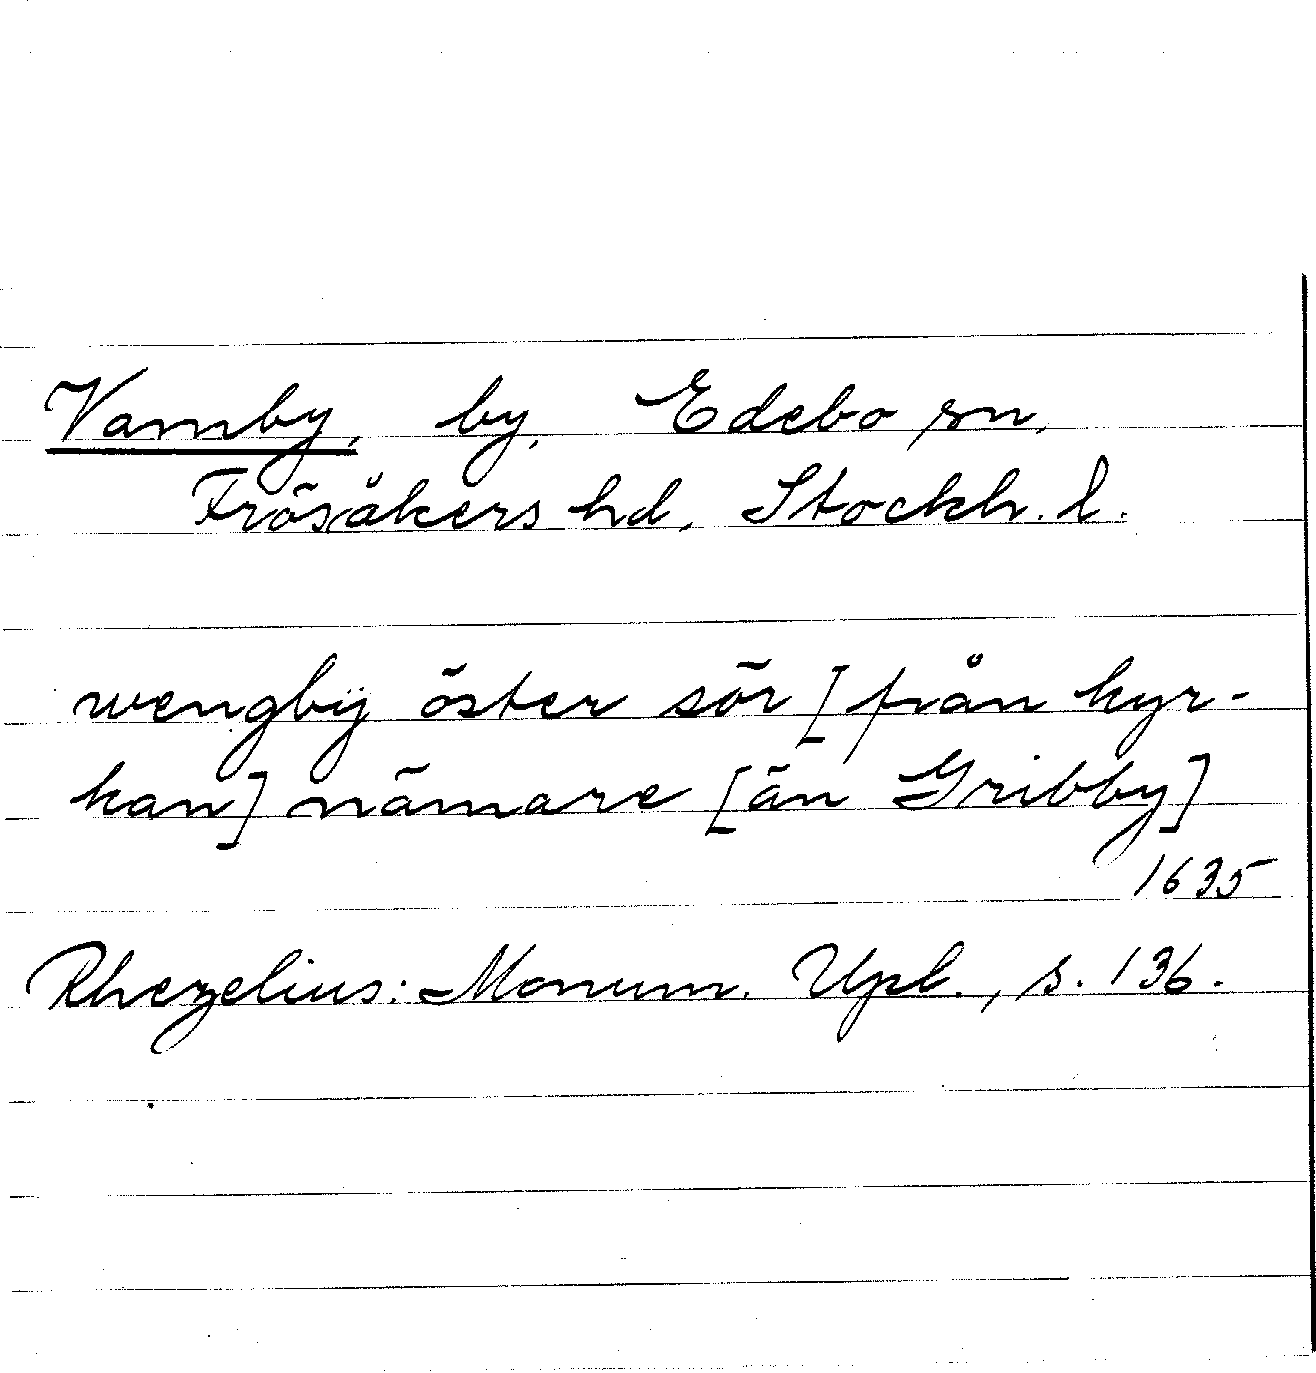 Vamby, by, Edebo sn,
Frösåkers hd, Stockh. l.
wengbÿ öster sör [från kyr-
kan] nämare [än Gribby]
1635
Rhezelius: Monum. Upl., s. 136.